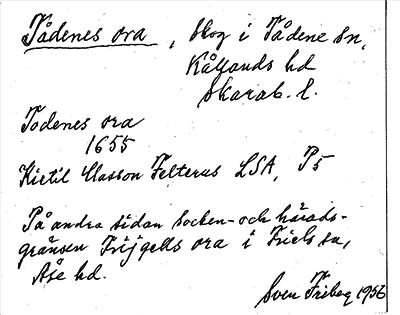 Tådenes ora, skog i Tådene sn,
Kållands hd
Skarab. l.
Todenes ora
1655
Kietil Classon Felterus LSA, P5
På andra sidan socken- och härads-
gränsen Frijgells ora i Friels sn,
Åse hd.
Sven Friberg 1956